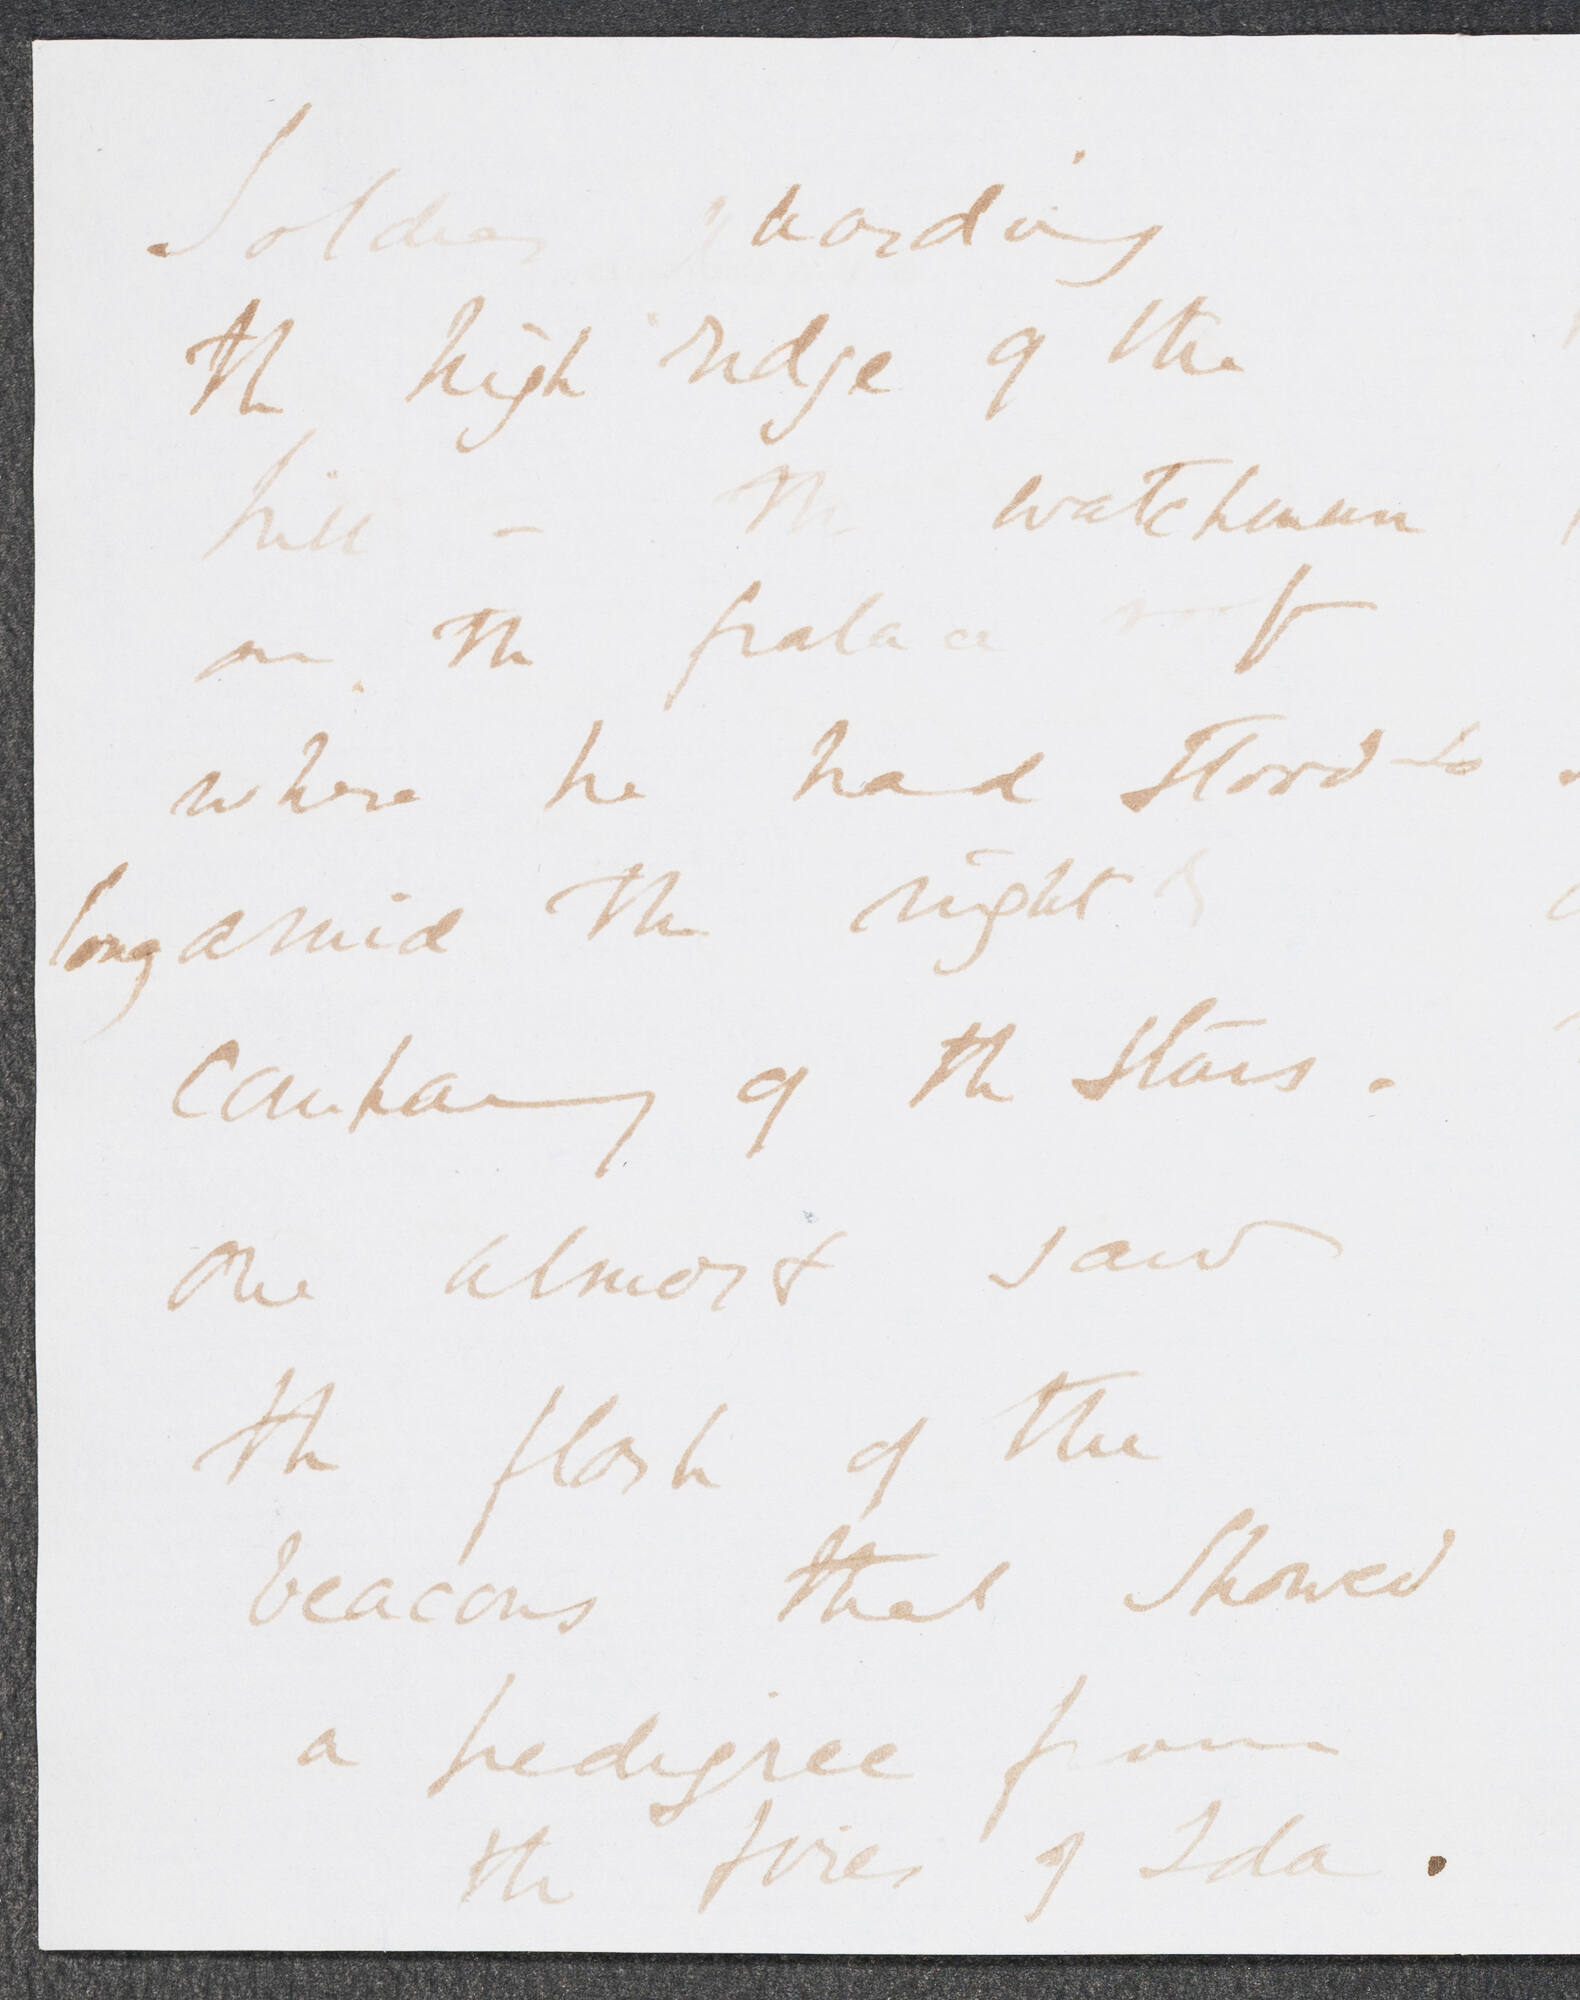 Soldier guarding
the high ridge of the
hill – the watchman
on the palace roof
where he had stood so
long amid the night's
company of the stars.
One almost saw
the flash of the
beacons that showed
a pedigree from
the fires of Ida.